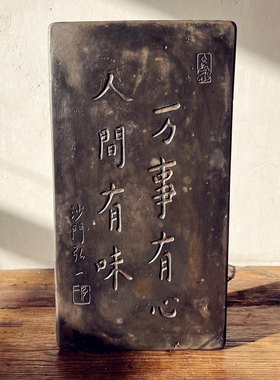 万事有心
人間有味
沙門弘一